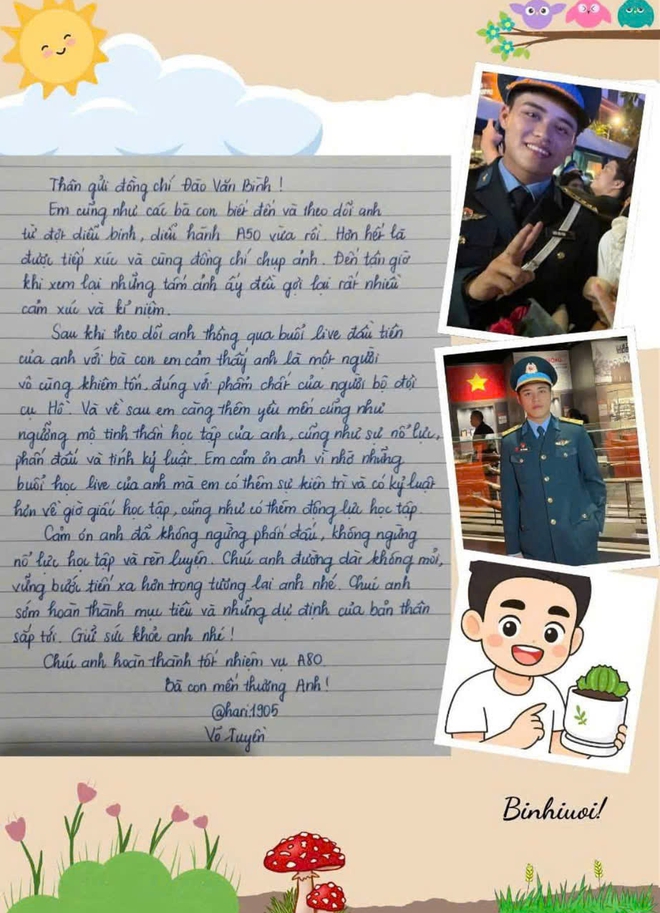 Thân gửi đồng chí Đào Văn Bình !
Em cũng như các bà con biết đến và theo dõi anh
từ đợt diễu binh, diễu hành A50 vừa rồi. Hơn hết là
được tiếp xúc và cùng đồng chí chụp ảnh. Đến tận giờ
khi xem lại những tấm ảnh ấy đều gợi lại rất nhiều
cảm xúc và kỉ niệm.
Sau khi theo dõi anh thông qua buổi live đầu tiên
của anh với bà con em cảm thấy anh là một người
vô cùng khiêm tốn, đúng với phẩm chất của người bộ đội
cụ Hồ. Và về sau em càng thêm yêu mến cũng như
ngưỡng mộ tinh thần học tập của anh, cũng như sự nỗ lực,
phấn đấu và tính kỷ luật. Em cảm ơn anh vì nhờ những
buổi học live của anh mà em có thêm sự kiên trì và có kỷ luật
hơn về giờ giấc học tập, cũng như có thêm động lực học tập.
Cảm ơn anh đã không ngừng phấn đấu, không ngừng
nỗ lực học tập và rèn luyện. Chúc anh đường dài không mỏi,
vững bước tiến xa hơn trong tương lai anh nhé. Chúc anh
sớm hoàn thành mục tiêu và những dự định của bản thân
sắp tới. Giữ sức khỏe anh nhé !
Chúc anh hoàn thành tốt nhiệm vụ A80.
Bà con mến thương Anh !
@hari1905
Võ Tuyền
Binhiuoi!